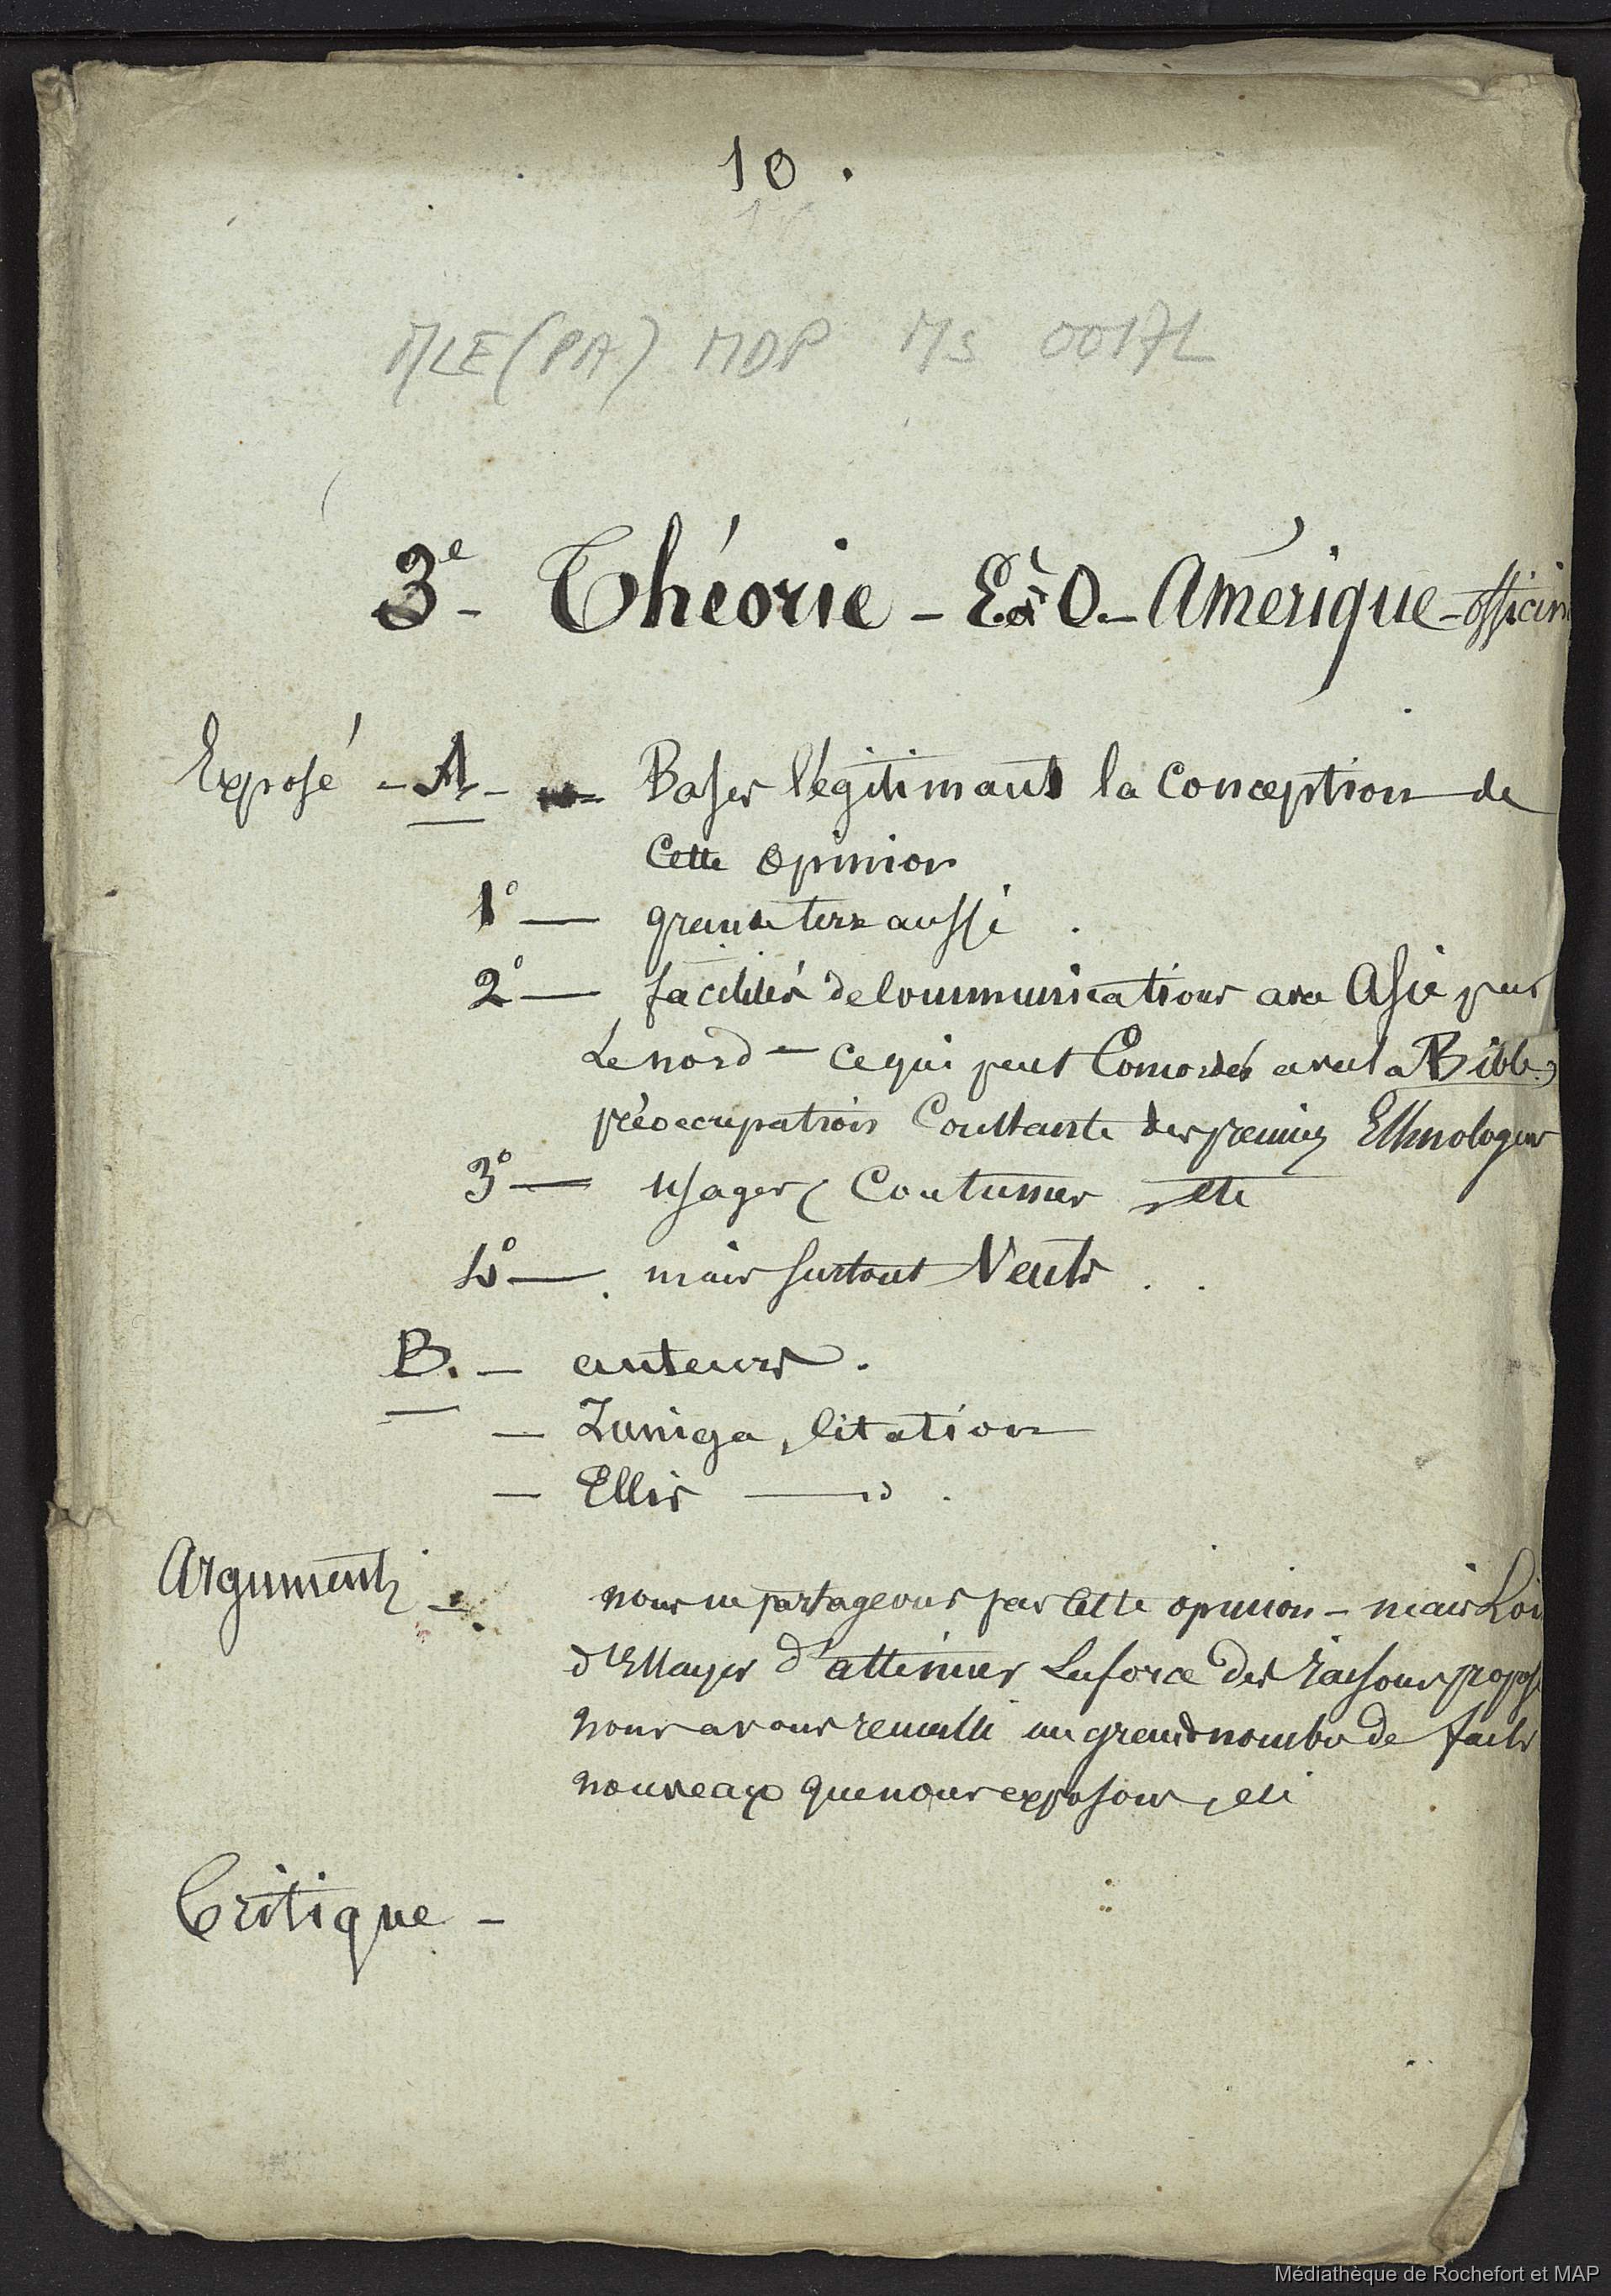 10.
MLE (PA) MDP Ms 0017L
3e - Théorie - E à O - Amérique - officin
Exposé - A - Bases légitimant la conception de
cette opinion
1° — grande terre aussi.
2° — facilités de communications avec Asie par
Le nord - ce qui peut Concorder avec la Bible
préoccupation Constante des premiers Ethnologues
3° — usages, Coutumes, etc
4° — mais surtout Vents
B. - auteurs.
- Zuniga, Citation
- Ellis — d°.
Arguments -
nous ne partageons pas cette opinion - mais Loi
d'Essayer d'atténuer La force des raisons propos
nous avons recueilli un grand nombre de faits
nouveaux que nous exposons, etc
Critique -
Médiathèque de Rochefort et MAP